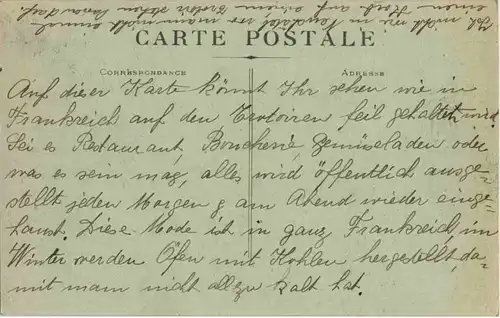 CARTE POSTALE
CORRESPONDANCE
ADRESSE
Auf dieser Karte könnt Ihr sehen wie in
Frankreich auf den Trotoiren feil gehalten wird
Sei es Restaurant, Boucherie, Gemüseladen oder
was es sein mag, alles wird öffentlich ausge-
stellt jeden Morgen & am Abend wieder einge-
haust. Diese Mode ist in ganz Frankreich, im
Winter werden Öfen mit Kohlen hergestellt, da-
mit man nicht allzu kalt hat.
wo man nicht einmal